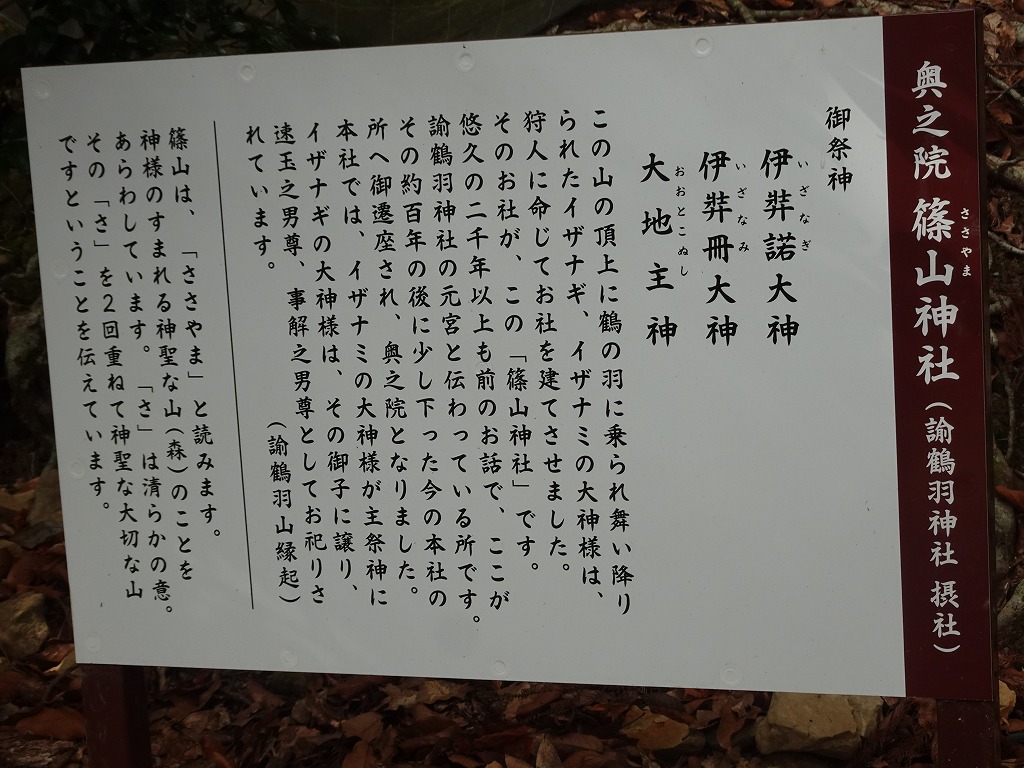 奥之院 篠山神社（諭鶴羽神社 摂社）
ささやま
御祭神
伊弉諾大神
いざなぎ
伊弉冊大神
いざなみ
大地主神
おおとこぬし
この山の頂上に鶴の羽に乗られ舞い降り
られたイザナギ、イザナミの大神様は、
狩人に命じてお社を建てさせました。
そのお社が、この「篠山神社」です。
悠久の二千年以上も前のお話で、ここが
諭鶴羽神社の元宮と伝わっている所です。
その約百年の後に少し下った今の本社の
所へ御遷座され、奥之院となりました。
本社では、イザナミの大神様が主祭神に
イザナギの大神様は、その御子に譲り、
速玉之男尊、事解之男尊としてお祀りさ
れています。
（諭鶴羽山縁起）
篠山は、「ささやま」と読みます。
神様のすまれる神聖な山（森）のことを
あらわしています。「さ」は清らかの意。
その「さ」を２回重ねて神聖な大切な山
ですということを伝えています。